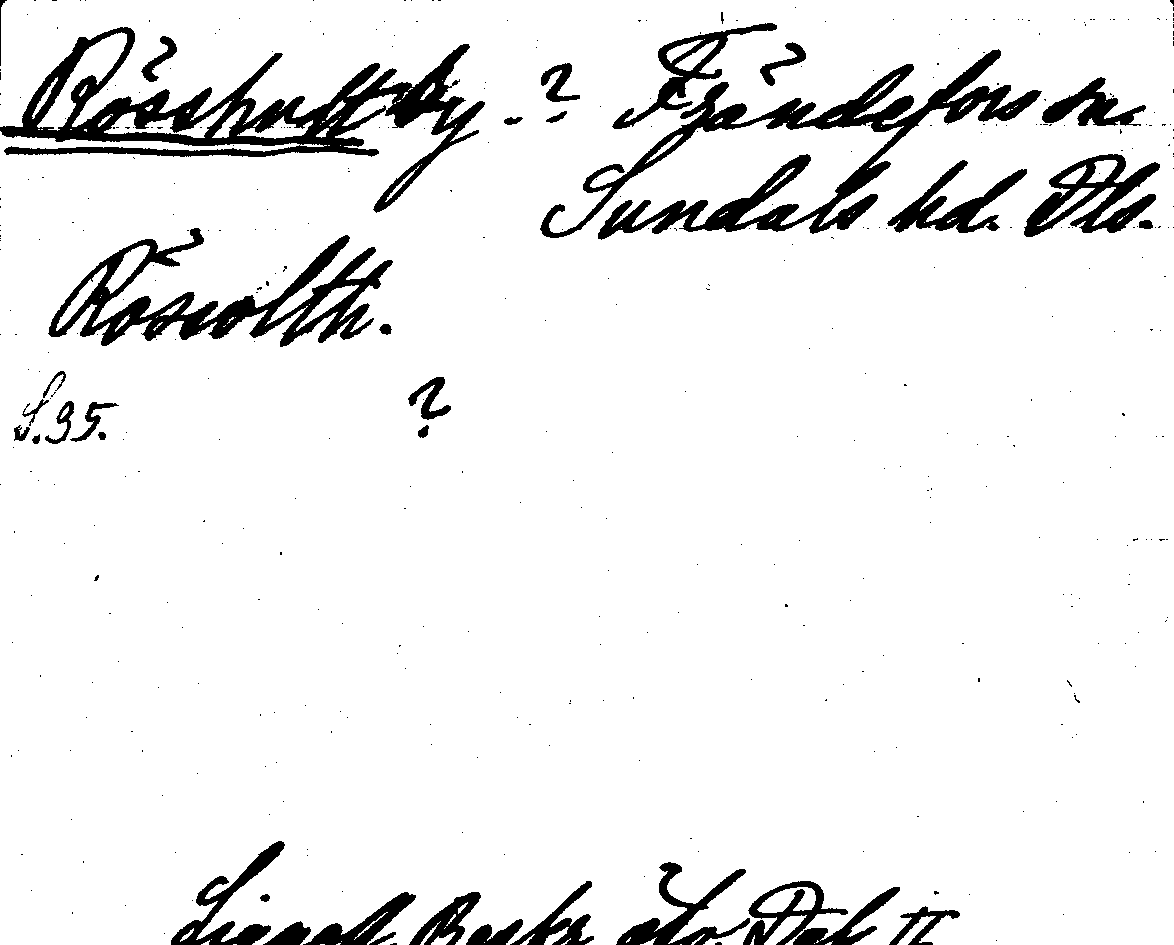 Rösshult by. ? Frändefors sn.
Sundals hd. Dls.
Rösiolth.
S. 35. ?
Lignell Beskr. öfv. Dal II